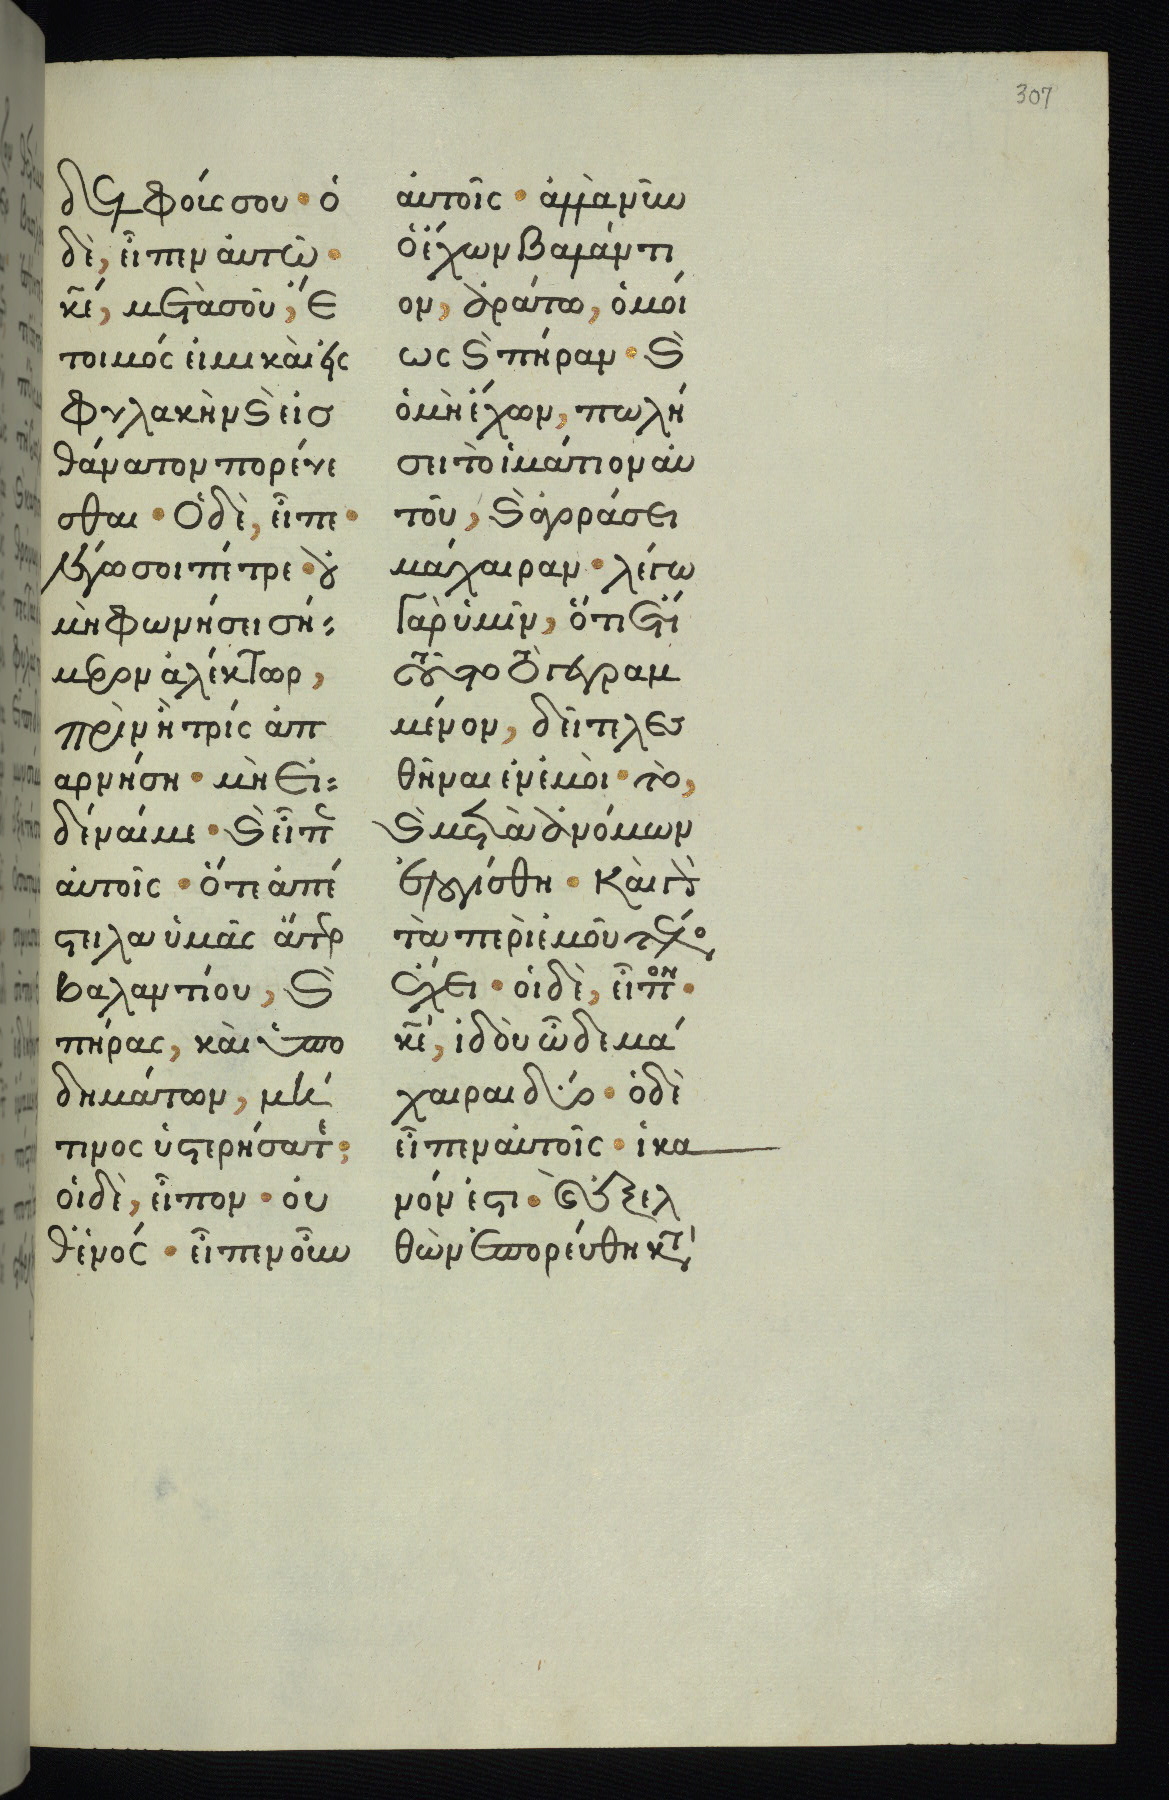 307
δελφούς σου · ὁ
δὲ, εἶπεν αὐτῶ ·
κε, μετὰ σοῦ, ἕ
τοιμός εἰμι καὶ εἰς
φυλακὴν καὶ εἰς
θάνατον πορεύε
σθαι · Ὁ δὲ, εἶπε ·
λέγω σοι πέτρε · οὐ
μὴ φωνήσει σή
μερον ἀλέκτωρ,
πρὶν ἢ τρίς ἀπ
αρνήση · μὴ εἰ
δέναι με · καὶ εἶπεν
αὐτοῖς · ὅτε ἀπέ
στειλα ὑμᾶς ἄτερ
βαλαντίου, καὶ
πήρας, καὶ ὑπο
δημάτων, μή
τινος ὑστερήσατε;
οἱ δὲ, εἶπον · οὐ
θενός · εἶπεν οὖν
αὐτοῖς · ἀλλὰ νῦν
ὁ ἔχων βαλάντι
ον, ἀράτω, ὁμοί
ως καὶ πήραν · καὶ
ὁ μὴ ἔχων, πωλή
σει τὸ ἱμάτιον αὐ
τοῦ, καὶ ἀγοράσει
μάχαιραν · λέγω
γὰρ ὑμῖν, ὅτι ἔτι
τοῦτο τὸ γεγραμ
μένον, δεῖ τελεσ
θῆναι ἐν ἐμοὶ · τὸ,
καὶ μετὰ ἀνόμων
ἐλογίσθη · Καὶ γὰρ
τὰ περὶ ἐμοῦ τέλος
ἔχει · οἱ δὲ, εἶπον ·
κε, ἰδοὺ ὧδε μά
χαιραι δύο · ὁ δὲ
εἶπεν αὐτοῖς · ἱκα
νόν ἐστι · Καὶ ἐξελ
θὼν ἐπορεύθη κατ